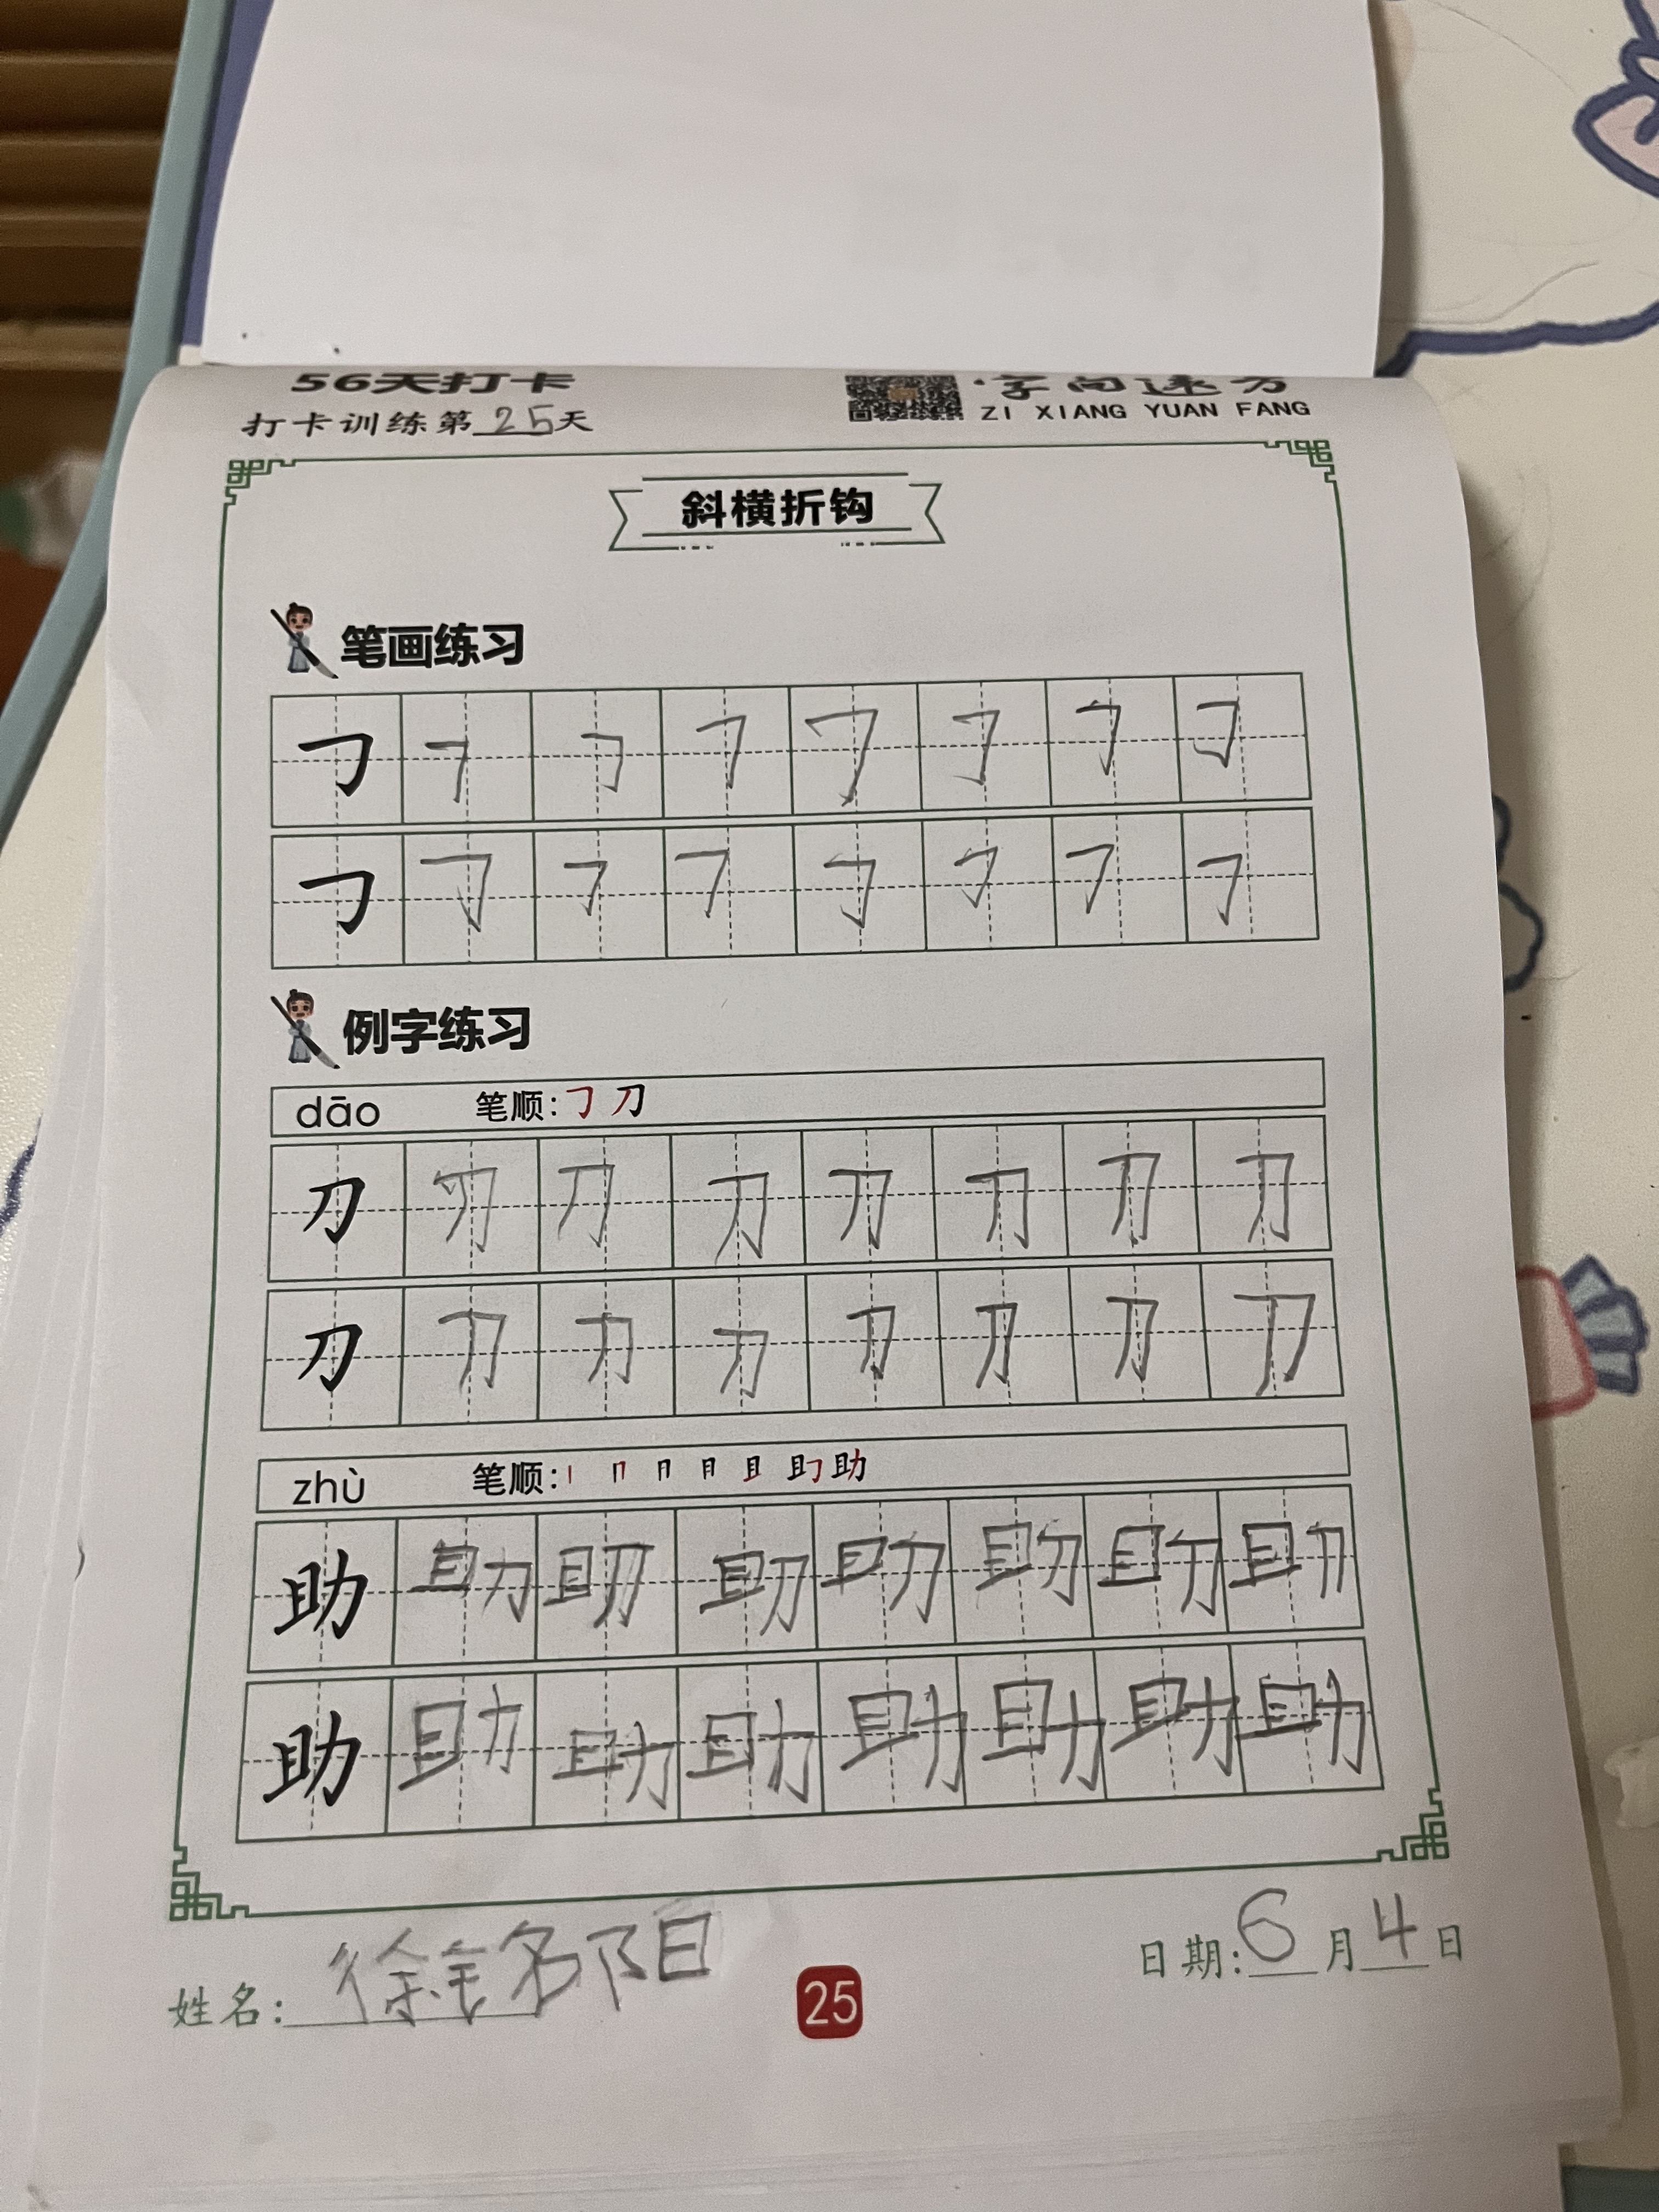 56天打卡
·字向远方
打卡训练第25天
ZI XIANG YUAN FANG
斜横折钩
笔画练习
例字练习
dāo 笔顺: 𠃌 刀
刀 刀 刀 刀 刀 刀 刀 刀
刀 刀 刀 刀 刀 刀 刀 刀
zhù 笔顺: 丨 冂 冃 月 且 助
助 助 助 助 助 助 助 助
助 助 助 助 助 助 助 助
姓名: 徐 名阳
25
日期: 6月4日